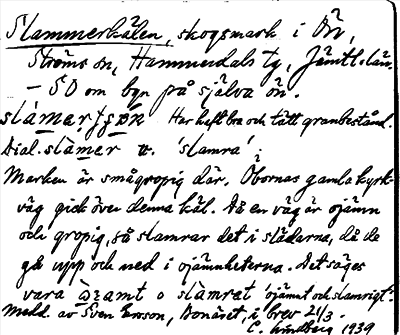 Slammerkälen, skogsmark i Ön,
Ströms sn, Hammerdals tg, Jämtl. län.
- SO om byn på själva ön.
Har haft bra och tätt granbestånd.
Dial. slàmer v. 'slamra'.
Marken är smågropig där. Öbornas gamla kyrk-
väg gick över denna käl. Då en väg är ojämn
och gropig, så slamrar det i slädarna, då de
gå upp och ned i ojämnheterna. Det säges
vara o slàmrat 'ojämnt och slamrigt'.
Medd. av Sven Eroson, i brev 21/3
C. Lindberg 1939